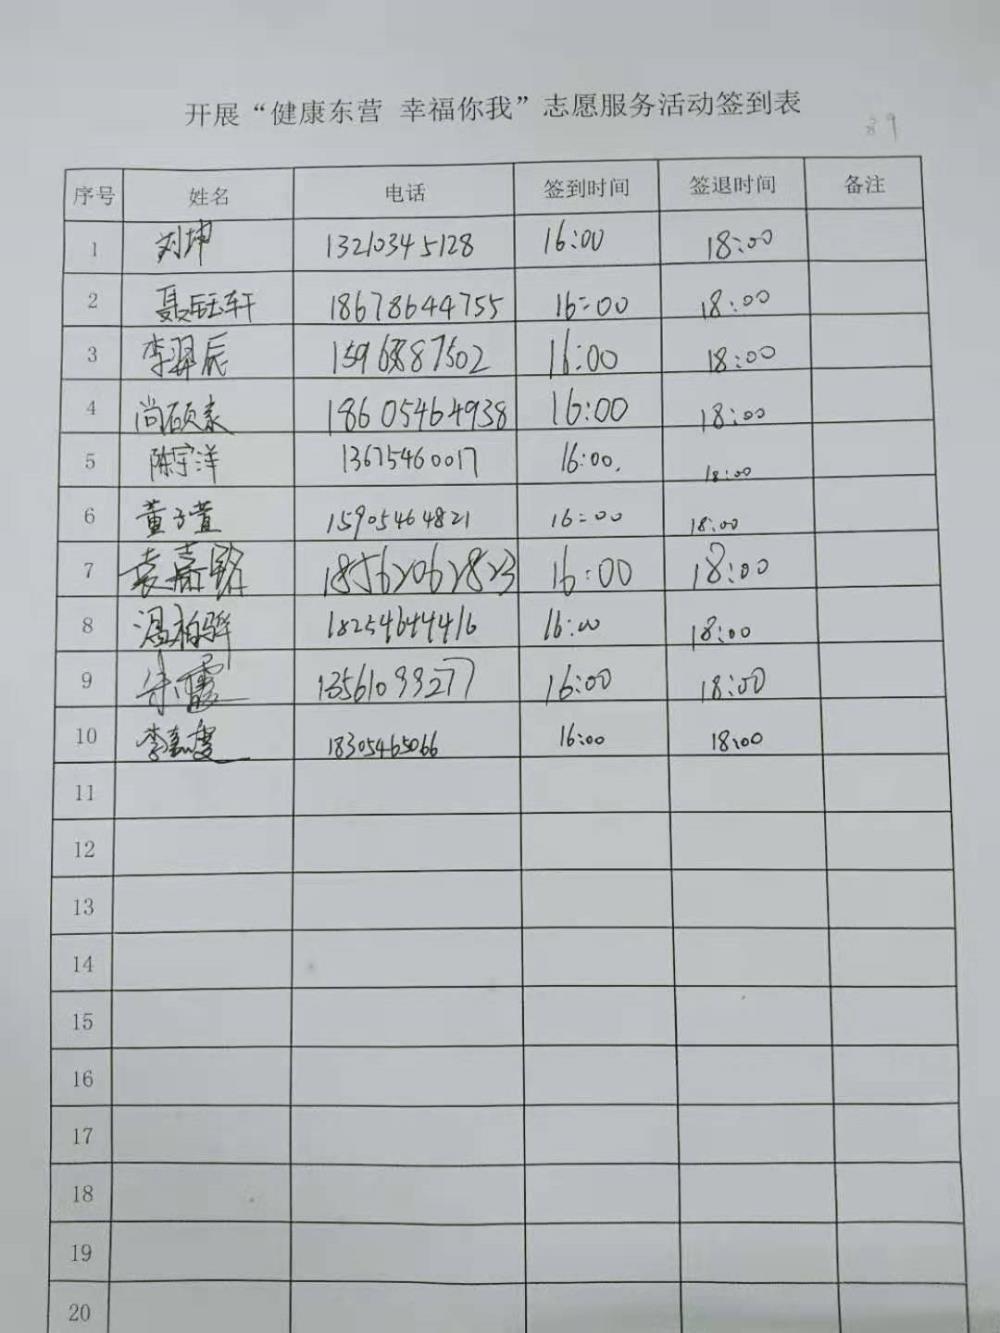 开展“健康东营 幸福你我”志愿服务活动签到表
89
序号 姓名 电话 签到时间 签退时间 备注
1 刘坤 13210345128 16:00 18:00
2 聂钰轩 18678644755 16:00 18:00
3 李羿辰 1596887502 16:00 18:00
4 尚硕 18605464938 16:00 18:00
5 陈宇洋 13675460017 16:00. 18:00
6 董子萱 15905464821 16:00 18:00
7 袁嘉铭 18562062823 16:00 18:00
8 温柏骅 18254644416 16:00 18:00
9 朱霞 13561099277 16:00 18:00
10 李嘉 18305465066 16:00 18:00
11
12
13
14
15
16
17
18
19
20